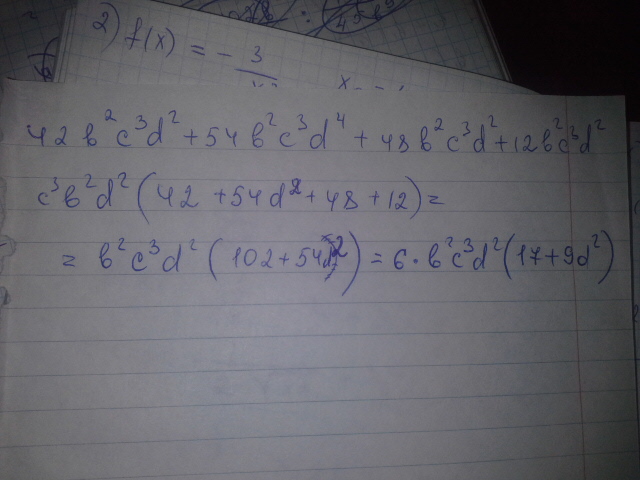 2) f(x) = - 3
42 b²c³d² + 54 b²c³d⁴ + 48 b²c³d² + 12 b²c³d²
c³b²d² (42 + 54d² + 48 + 12) =
= b²c³d² (102 + 54d²) = 6 · b²c³d² (17 + 9d²)